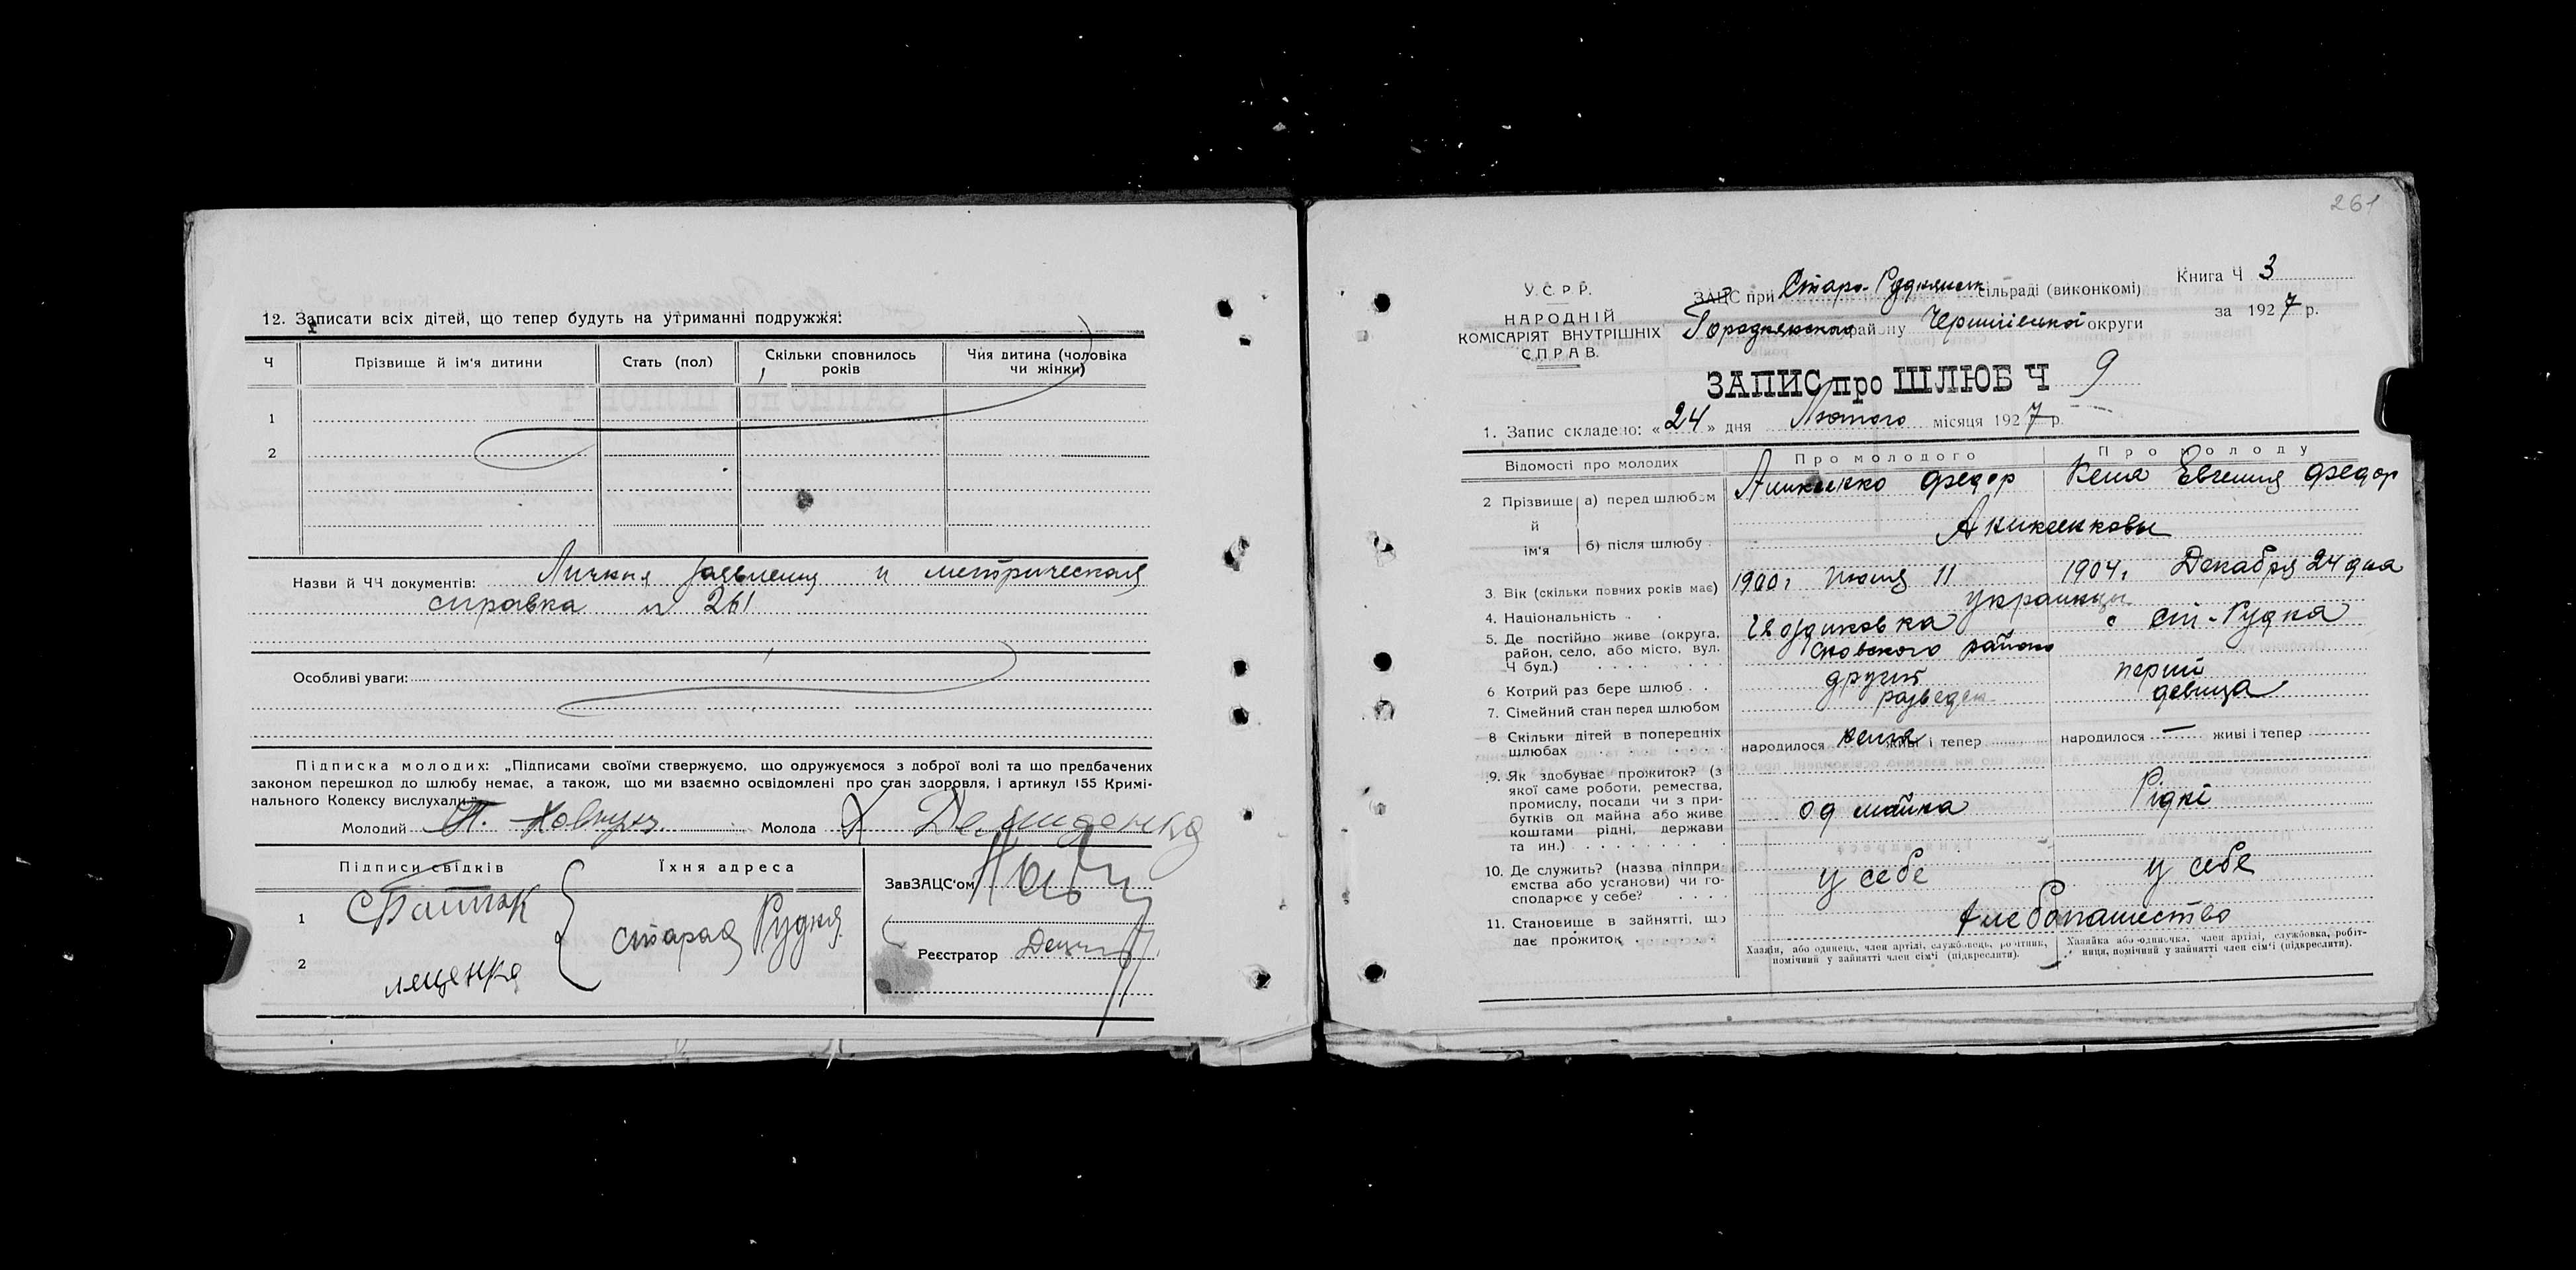 12. Записати всіх дітей, що тепер будуть на утриманні подружжя:
Ч
Прізвище й ім'я дитини
Стать (пол)
Скільки сповнилось років
Чия дитина (чоловіка чи жінки)
1
2
Назви й ЧЧ документів: Личныя заявления и метрическая
справка № 261
Особливі уваги:
Підписка молодих: „Підписами своїми ствержуємо, що одружуємося з доброї волі та що предбачених
законом перешкод до шлюбу немає, а також, що ми взаємно освідомлені про стан здоровля, і артикул 155 Кримі-
нального Кодексу вислухали."
Молодий
Молода
Підписи свідків
Їхня адреса
1
2
лященко
Старая Рудня
ЗавЗАЦС'ом
Реєстратор
261
У.С.Р.Р.
НАРОДНІЙ
КОМІСАРІЯТ ВНУТРІШНІХ
СПРАВ.
ЗАЦС при Старо-Руднянск сільраді (виконкомі)
Городнянского району Чернигівської округи
Книга Ч 3
за 1927 р.
ЗАПИС про ШЛЮБ Ч 9
1. Запис складено: « 24 » дня Лютого місяця 1927 р.
Відомості про молодих
Про молодого
Про молоду
2 Прізвище й ім'я
а) перед шлюбом
Аникиенко Федор
Евгения Федор
б) після шлюбу
Аникиенковы
3. Вік (скільки повних років має)
1900, Июня 11
1904, Декабря 24 дня
4. Національність
украинцы
5. Де постійно живе (округа, район, село, або місто, вул. Ч буд.)
Сновского района
с Ст-Рудка
6 Котрий раз бере шлюб
другий
перший
7. Сімейний стан перед шлюбом
разведен
девица
8 Скільки дітей в попередніх шлюбах
народилося живі і тепер
народилося — живі і тепер
9. Як здобуває прожиток? (з якої саме роботи, ремества, промислу, посади чи з прибутків од майна або живе коштами рідні, держави та ин.)
од майна
Рідні
10. Де служить? (назва підприємства або установи) чи господарює у себе?
у себе
у себе
11. Становище в зайнятті, що дає прожиток
хлебопашество
Хазяїн, або одинець, член артілі, службовець, робітник, помічний у зайнятті член сім'ї (підкреслити).
Хазяйка або одиначка, член артілі, службовка, робітниця, помічний у зайнятті член сім'ї (підкреслити).